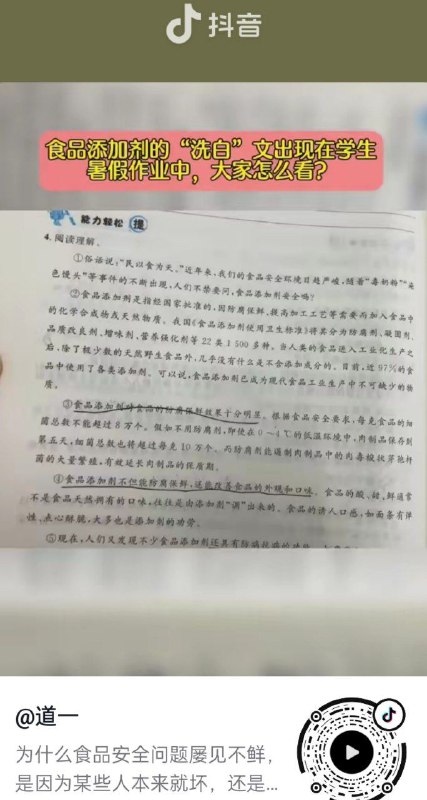 抖音
食品添加剂的“洗白”文出现在学生
暑假作业中，大家怎么看？
能力轻松 提
4. 阅读理解。
①俗话说：“民以食为天。”近年来，我们的食品安全环境日趋严峻，随着“毒奶粉”“染
色馒头”等事件的不断出现，人们不禁要问，食品添加剂安全吗？
②食品添加剂是指经国家批准的，因防腐保鲜、提高加工工艺等需要而加入食品中
的化学合成物及天然物质。我国《食品添加剂使用卫生标准》将其分为防腐剂、凝固剂、
品质改良剂、增味剂、营养强化剂等 22 类 1 500 多种。当人类的食品进入工业化生产之
后，除了极少数的天然野生食品外，几乎没有什么是不含添加成分的。目前，近 97%的食
品中使用了各类添加剂。可以说，食品添加剂已成为现代食品工业生产中不可缺少的物
质。
③食品添加剂对食品的防腐保鲜效果十分明显。根据食品安全要求，每克食品的细
菌总数不能超过 8 万个。假如不用防腐剂，即使在 0～4 ℃的低温环境中，肉制品保存到
第五天，细菌总数也将超过每克 10 万个。而防腐剂能遏制肉制品中的肉毒梭状芽孢杆
菌的大量繁殖，有效延长肉制品的保质期。
④食品添加剂不但能防腐保鲜，还能改善食品的外观和口味。食品的酸、甜、鲜通常
不是食品天然拥有的口味，往往是由添加剂“调”出来的。食品的诱人口感，如面条有弹
性、点心酥脆，大多也是添加剂的功劳。
⑤现在，人们又发现不少食品添加剂还具有防病抗病的功能
@道一
为什么食品安全问题屡见不鲜，
是因为某些人本来就坏，还是...